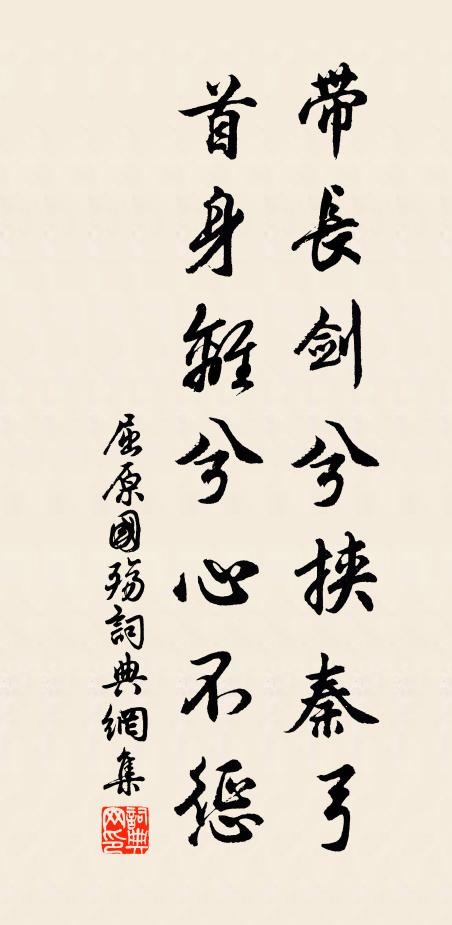 帶長劍兮挾秦弓
首身離兮心不懲
屈原國殤詞典網集
詞典网印